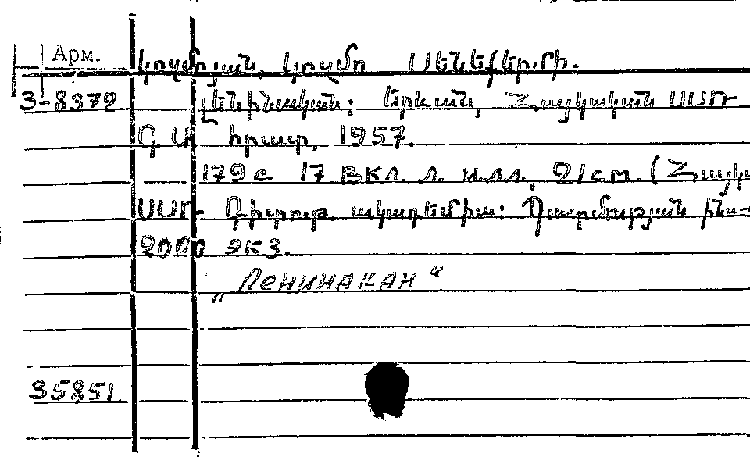 Арм.
З-8372
Լենինական: Երևան, Հայկական ՍՍՌ
ԳԱ հրատ., 1957.
179 с. 17 вкл. л. илл., 21 см. (Հայկ
ՍՍՌ Գիտութ. ակադեմիա: Պատմության ինս-
2000 экз.
„Ленинакан“
35851